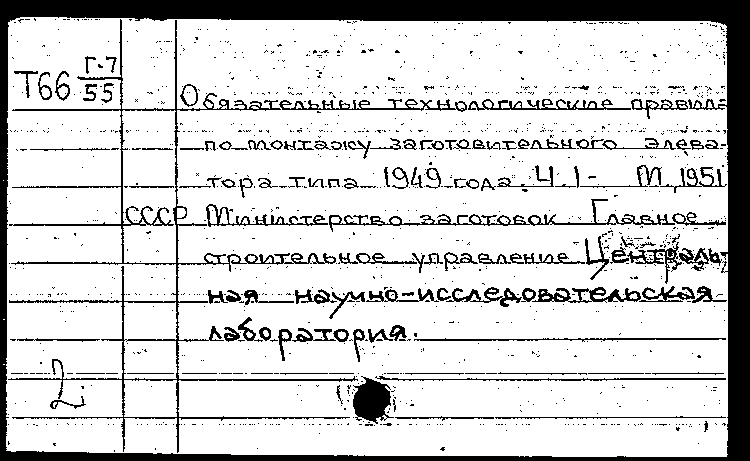 Т66 Г-7/55
Обязательные технологические правила
по монтажу заготовительного элева-
тора типа 1949 года. Ч.1- М.,1951
СССР Министерство заготовок Главное
строительное управление Централь-
ная научно-исследовательская
лаборатория.
2